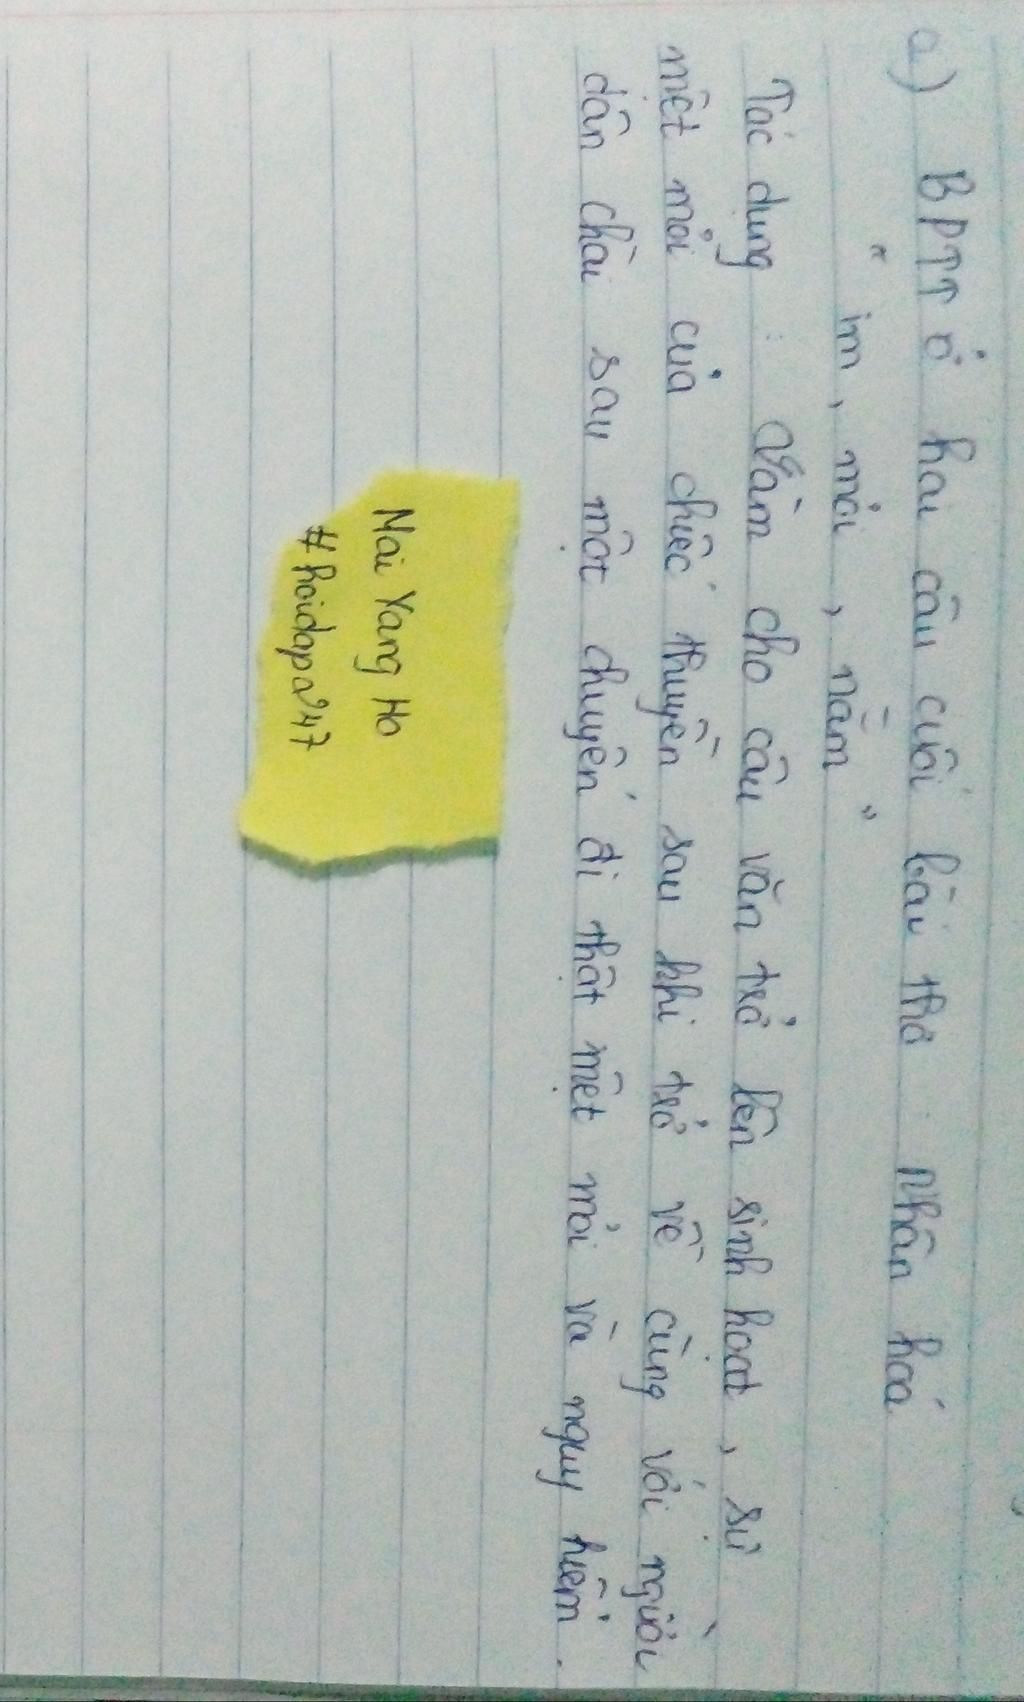 a) BPTT ở hai câu cuối bài thơ: nhân hoá
" im, mỏi, nằm "
Tác dụng: Làm cho câu văn trở lên sinh hoạt, sự
mệt mỏi của chiếc thuyền sau khi trở về cùng với người
dân chài sau một chuyến đi thật mệt mỏi và nguy hiểm.
Mai Yang Ho
#hoidap247